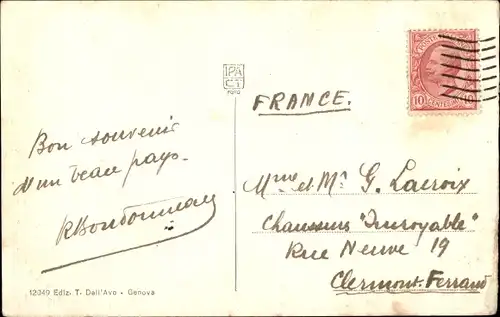 POSTE
10 CENTESIMI 10
IPA
CT
FOTO
FRANCE.
Bon souvenir
d'un beau pays.
Mme et Mr G. Lacroix
Chaussures "Incroyable"
Rue Neuve 19
Clermont-Ferrand
12349 Ediz. T. Dell'Avo - Genova